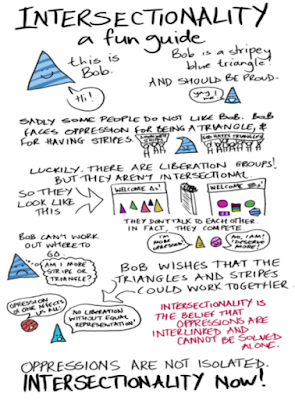 INTERSECTIONALITY
a fun guide
this is
Bob.
Hi!
Bob is a stripey
blue triangle!
AND SHOULD BE PROUD.
yay me!
SADLY SOME PEOPLE DO NOT LIKE BOB. BOB
FACES OPPRESSION FOR BEING A TRIANGLE, &
FOR HAVING STRIPES.
LUCKILY, THERE ARE LIBERATION GROUPS!
BUT THEY AREN'T INTERSECTIONAL
SO THEY
LOOK LIKE
THIS
WELCOME
WELCOME
THEY DON'T TALK TO EACH OTHER.
IN FACT, THEY COMPETE
BOB CAN'T WORK
OUT WHERE TO
GO
AM I MORE
STRIPE OR
TRIANGLE?
I'M
MORE
OPPRESSED!
NO, I AM!
I DESERVE
MORE!
BOB WISHES THAT THE
TRIANGLES AND STRIPES
COULD WORK TOGETHER.
OPPRESSION
OF ONE AFFECTS
US ALL!
NO LIBERATION
WITHOUT EQUAL
REPRESENTATION!
INTERSECTIONALITY IS
THE BELIEF THAT
OPPRESSIONS ARE
INTERLINKED AND
CANNOT BE SOLVED
ALONE.
OPPRESSIONS ARE NOT ISOLATED.
INTERSECTIONALITY NOW!